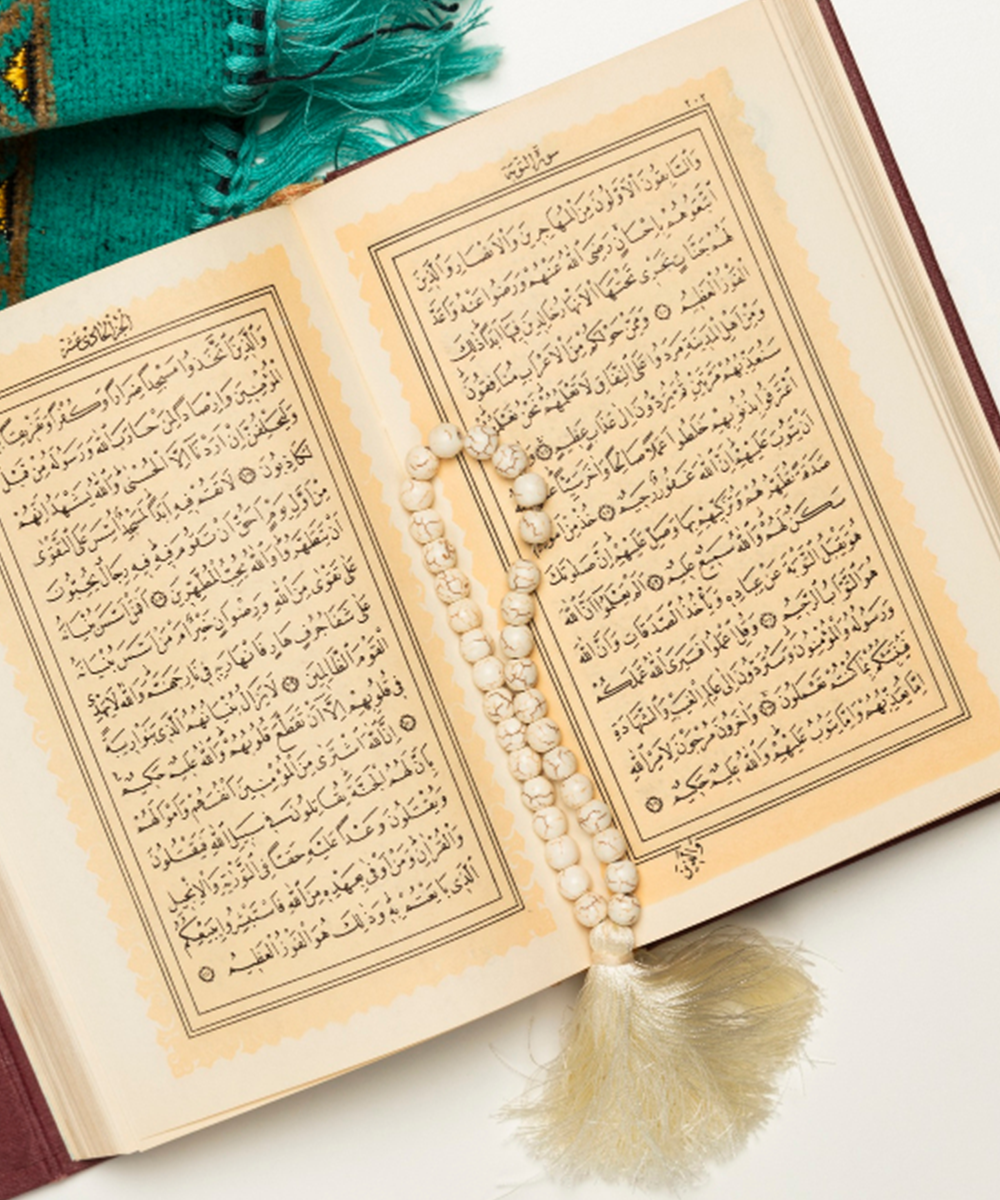 ٢٠٢
سورة التوبة
وَالسَّابِقُونَ الْأَوَّلُونَ مِنَ الْمُهَاجِرِينَ وَالْأَنْصَارِ وَالَّذِينَ
اتَّبَعُوهُمْ بِإِحْسَانٍ رَضِيَ اللَّهُ عَنْهُمْ وَرَضُوا عَنْهُ وَأَعَدَّ
لَهُمْ جَنَّاتٍ تَجْرِي تَحْتَهَا الْأَنْهَارُ خَالِدِينَ فِيهَا أَبَدًا ذَلِكَ
الْفَوْزُ الْعَظِيمُ وَمِمَّنْ حَوْلَكُمْ مِنَ الْأَعْرَابِ مُنَافِقُونَ
وَمِنْ أَهْلِ الْمَدِينَةِ مَرَدُوا عَلَى النِّفَاقِ لَا تَعْلَمُهُمْ نَحْنُ
سَنُعَذِّبُهُمْ مَرَّتَيْنِ ثُمَّ يُرَدُّونَ إِلَى عَذَابٍ عَظِيمٍ
اعْتَرَفُوا بِذُنُوبِهِمْ خَلَطُوا عَمَلًا صَالِحًا وَآخَرَ سَيِّئًا
أَنْ يَتُوبَ عَلَيْهِمْ إِنَّ اللَّهَ غَفُورٌ رَحِيمٌ خُذْ مِنْ
صَدَقَةً تُطَهِّرُهُمْ وَتُزَكِّيهِمْ بِهَا وَصَلِّ عَلَيْهِمْ إِنَّ صَلَوتَكَ
سَكَنٌ لَهُمْ وَاللَّهُ سَمِيعٌ عَلِيمٌ أَلَمْ يَعْلَمُوا أَنَّ اللَّهَ
هُوَ يَقْبَلُ التَّوْبَةَ عَنْ عِبَادِهِ وَيَأْخُذُ الصَّدَقَاتِ وَأَنَّ اللَّهَ
هُوَ التَّوَّابُ الرَّحِيمُ وَقُلِ اعْمَلُوا فَسَيَرَى اللَّهُ عَمَلَكُمْ
وَرَسُولُهُ وَالْمُؤْمِنُونَ وَسَتُرَدُّونَ إِلَى عَالِمِ الْغَيْبِ وَالشَّهَادَةِ
فَيُنَبِّئُكُمْ بِمَا كُنْتُمْ تَعْمَلُونَ وَآخَرُونَ مُرْجَوْنَ لِأَمْرِ اللَّهِ
إِمَّا يُعَذِّبُهُمْ وَإِمَّا يَتُوبُ عَلَيْهِمْ وَاللَّهُ عَلِيمٌ حَكِيمٌ
الجزء الحادي عشر
وَالَّذِينَ اتَّخَذُوا مَسْجِدًا ضِرَارًا وَكُفْرًا وَتَفْرِيقًا
الْمُؤْمِنِينَ وَإِرْصَادًا لِمَنْ حَارَبَ اللَّهَ وَرَسُولَهُ مِنْ قَبْلُ
وَلَيَحْلِفُنَّ إِنْ أَرَدْنَا إِلَّا الْحُسْنَى وَاللَّهُ يَشْهَدُ إِنَّهُمْ
لَكَاذِبُونَ لَا تَقُمْ فِيهِ أَبَدًا لَمَسْجِدٌ أُسِّسَ عَلَى التَّقْوَى
مِنْ أَوَّلِ يَوْمٍ أَحَقُّ أَنْ تَقُومَ فِيهِ فِيهِ رِجَالٌ يُحِبُّونَ
أَنْ يَتَطَهَّرُوا وَاللَّهُ يُحِبُّ الْمُطَّهِّرِينَ أَفَمَنْ أَسَّسَ بُنْيَانَهُ
عَلَى تَقْوَى مِنَ اللَّهِ وَرِضْوَانٍ خَيْرٌ أَمْ مَنْ أَسَّسَ بُنْيَانَهُ
عَلَى شَفَا جُرُفٍ هَارٍ فَانْهَارَ بِهِ فِي نَارِ جَهَنَّمَ وَاللَّهُ لَا يَهْدِي
الْقَوْمَ الظَّالِمِينَ لَا يَزَالُ بُنْيَانُهُمُ الَّذِي بَنَوْا رِيبَةً
فِي قُلُوبِهِمْ إِلَّا أَنْ تَقَطَّعَ قُلُوبُهُمْ وَاللَّهُ عَلِيمٌ حَكِيمٌ
إِنَّ اللَّهَ اشْتَرَى مِنَ الْمُؤْمِنِينَ أَنْفُسَهُمْ وَأَمْوَالَهُمْ
بِأَنَّ لَهُمُ الْجَنَّةَ يُقَاتِلُونَ فِي سَبِيلِ اللَّهِ فَيَقْتُلُونَ
وَيُقْتَلُونَ وَعْدًا عَلَيْهِ حَقًّا فِي التَّوْرَيةِ وَالْإِنْجِيلِ
وَالْقُرْآنِ وَمَنْ أَوْفَى بِعَهْدِهِ مِنَ اللَّهِ فَاسْتَبْشِرُوا بِبَيْعِكُمُ
الَّذِي بَايَعْتُمْ بِهِ وَذَلِكَ هُوَ الْفَوْزُ الْعَظِيمُ